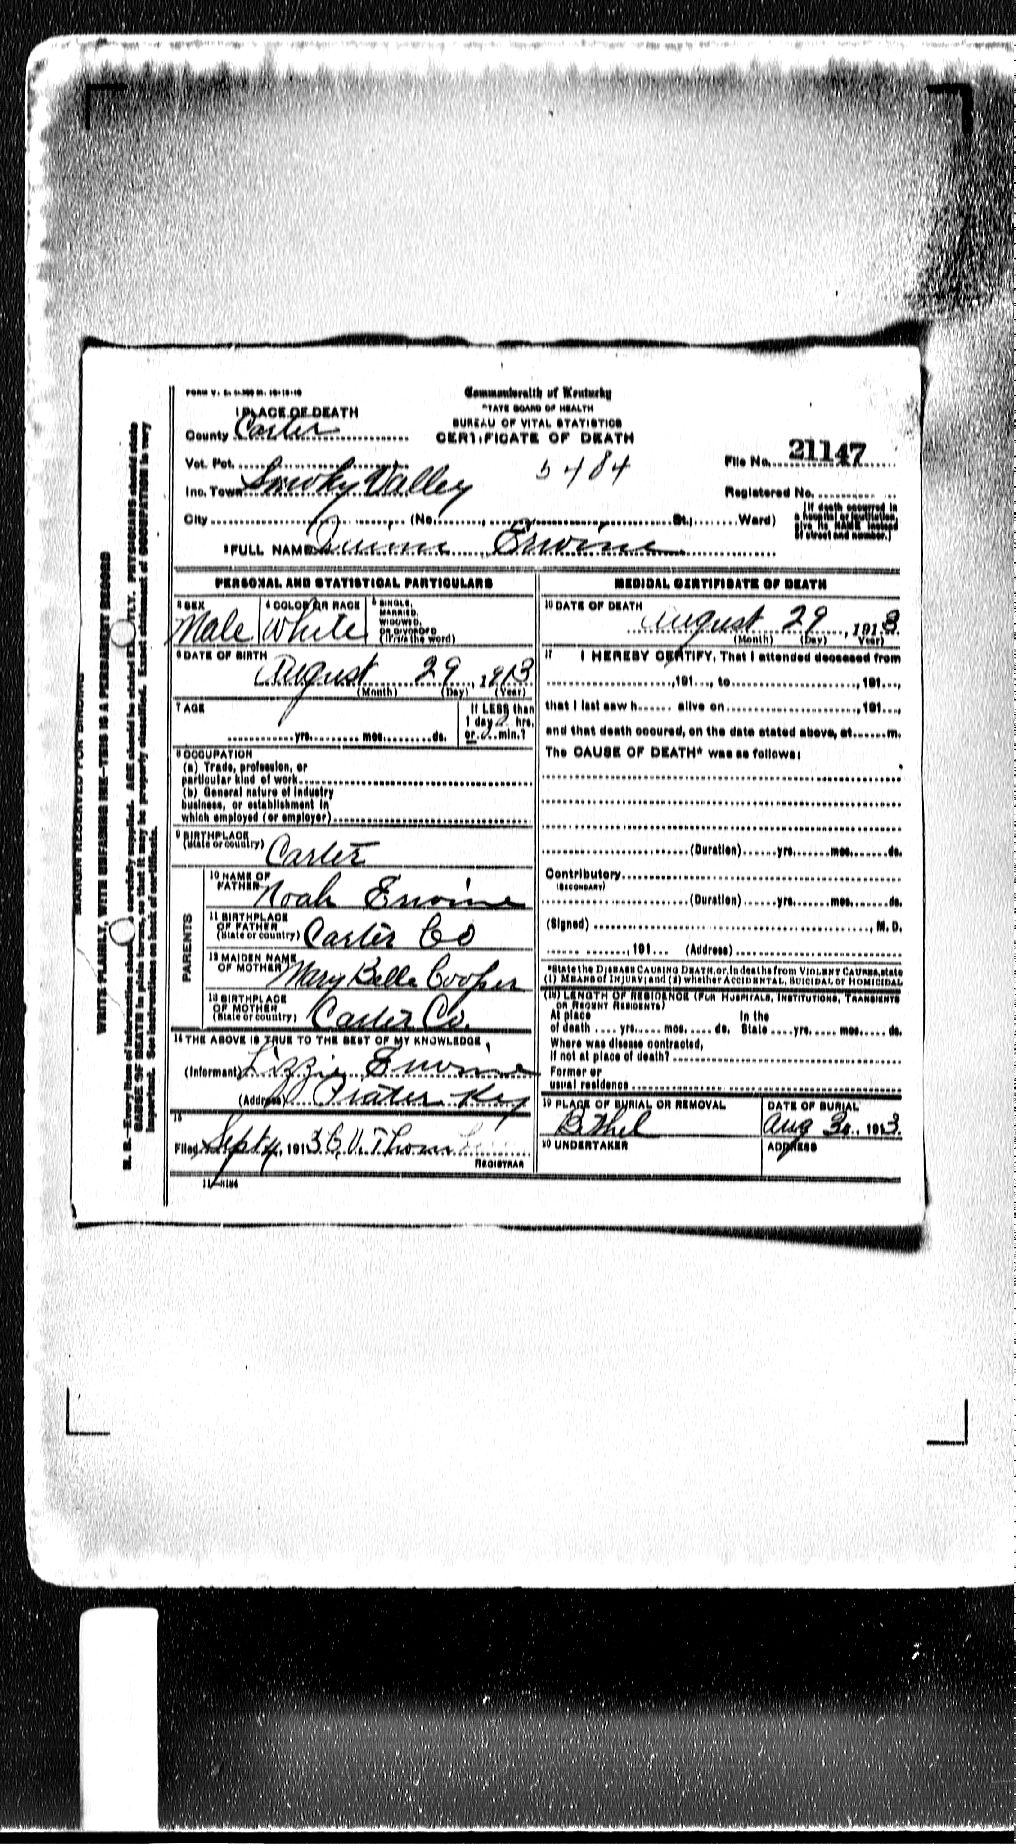 Commonwealth of Kentucky
STATE BOARD OF HEALTH
BUREAU OF VITAL STATISTICS
CERTIFICATE OF DEATH
1 PLACE OF DEATH
County Carter
Vot. Pct.
5484
File No. 21147
Inc. Town Smoky Valley
Registered No.
City (No. St.; Ward)
(If death occurred in a hospital or institution, give its NAME instead of street and number.)
2 FULL NAME Erwine
PERSONAL AND STATISTICAL PARTICULARS
3 SEX
Male
4 COLOR OR RACE
White
5 SINGLE,
MARRIED,
WIDOWED,
OR DIVORCED
(Write the word)
6 DATE OF BIRTH
August 29, 1913
(Month) (Day) (Year)
7 AGE
yrs. mos. ds.
If LESS than
1 day 0 hrs.
or 0 min.?
8 OCCUPATION
(a) Trade, profession, or
particular kind of work
(b) General nature of industry
business, or establishment in
which employed (or employer)
9 BIRTHPLACE
(State or country) Carter
PARENTS
10 NAME OF
FATHER Noah Erwine
11 BIRTHPLACE
OF FATHER
(State or country) Carter Co
12 MAIDEN NAME
OF MOTHER Mary Belle Cooper
13 BIRTHPLACE
OF MOTHER
(State or country) Carter Co.
14 THE ABOVE IS TRUE TO THE BEST OF MY KNOWLEDGE
(Informant) Lizzie Erwine
(Address) Prater Key
15
Filed Sept 4, 1913 C. V. Thom
REGISTRAR
11-3184
MEDICAL CERTIFICATE OF DEATH
16 DATE OF DEATH
August 29, 1913
(Month) (Day) (Year)
17 I HEREBY CERTIFY, That I attended deceased from
, 191 , to , 191 ,
that I last saw h alive on , 191 ,
and that death occured, on the date stated above, at m.
The CAUSE OF DEATH* was as follows:
(Duration) yrs. mos. ds.
Contributory
(SECONDARY)
(Duration) yrs. mos. ds.
(Signed) , M. D.
, 191 (Address)
*State the DISEASE CAUSING DEATH, or, in deaths from VIOLENT CAUSES, state
(1) MEANS OF INJURY; and (2) whether ACCIDENTAL, SUICIDAL or HOMICIDAL
(18) LENGTH OF RESIDENCE (FOR HOSPITALS, INSTITUTIONS, TRANSIENTS
OR RECENT RESIDENTS)
At place In the
of death yrs. mos. ds. State yrs. mos. ds.
Where was disease contracted,
if not at place of death?
Former or
usual residence
19 PLACE OF BURIAL OR REMOVAL
Bethel
DATE OF BURIAL
Aug 30, 1913
20 UNDERTAKER
ADDRESS
MARGIN RESERVED FOR BINDING
WRITE PLAINLY, WITH UNFADING INK—THIS IS A PERMANENT RECORD
N. B.—Every item of information should be carefully supplied. AGE should be stated EXACTLY. PHYSICIANS should state
CAUSE OF DEATH in plain terms, so that it may be properly classified. Exact statement of OCCUPATION is very
important. See instructions on back of certificate.